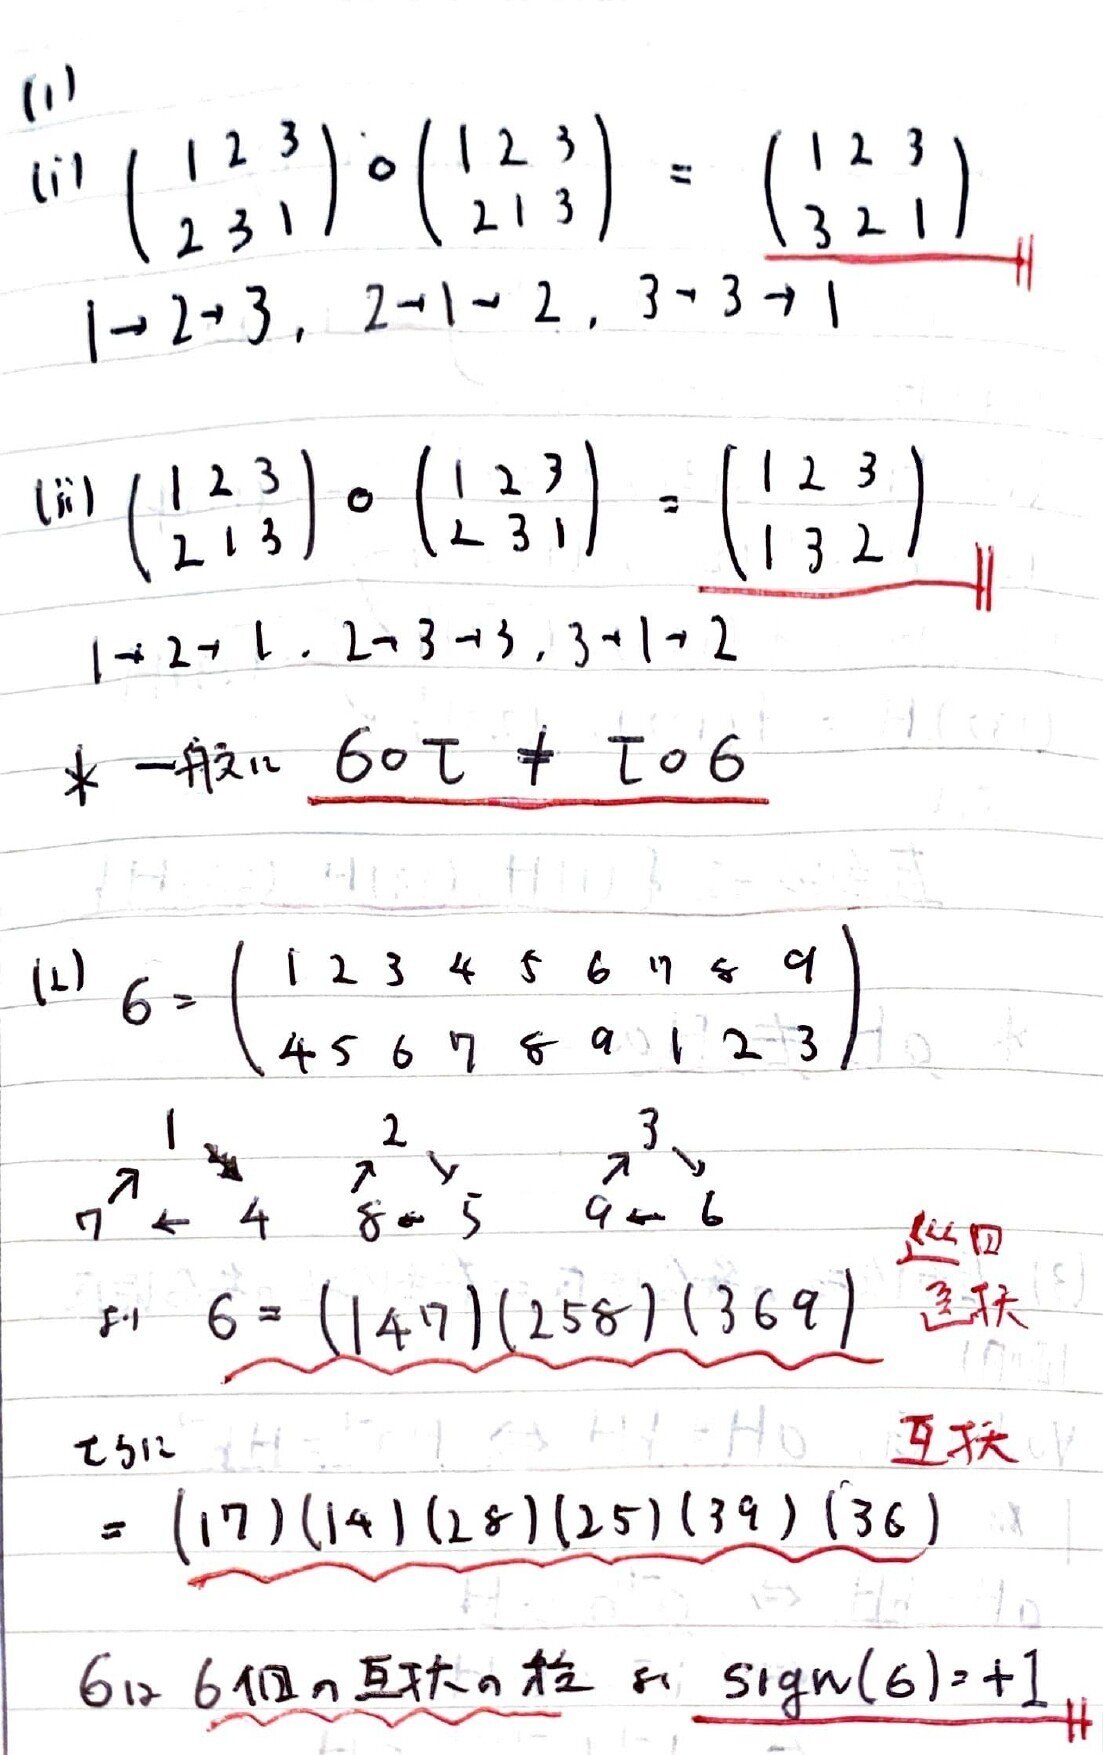 (1)
(i) ( 1 2 3 / 2 3 1 ) ∘ ( 1 2 3 / 2 1 3 ) = ( 1 2 3 / 3 2 1 )
1→2→3, 2→1→2, 3→3→1
(ii) ( 1 2 3 / 2 1 3 ) ∘ ( 1 2 3 / 2 3 1 ) = ( 1 2 3 / 1 3 2 )
1→2→1. 2→3→3, 3→1→2
* 一般に σ∘τ ≠ τ∘σ
(2) σ = ( 1 2 3 4 5 6 7 8 9 / 4 5 6 7 8 9 1 2 3 )
1 2 3
7 ← 4 8 ← 5 9 ← 6
巡回
より σ = (147)(258)(369) 置換
さらに 互換
= (17)(14)(28)(25)(39)(36)
σは 6個の互換の積 より sign(σ)=+1